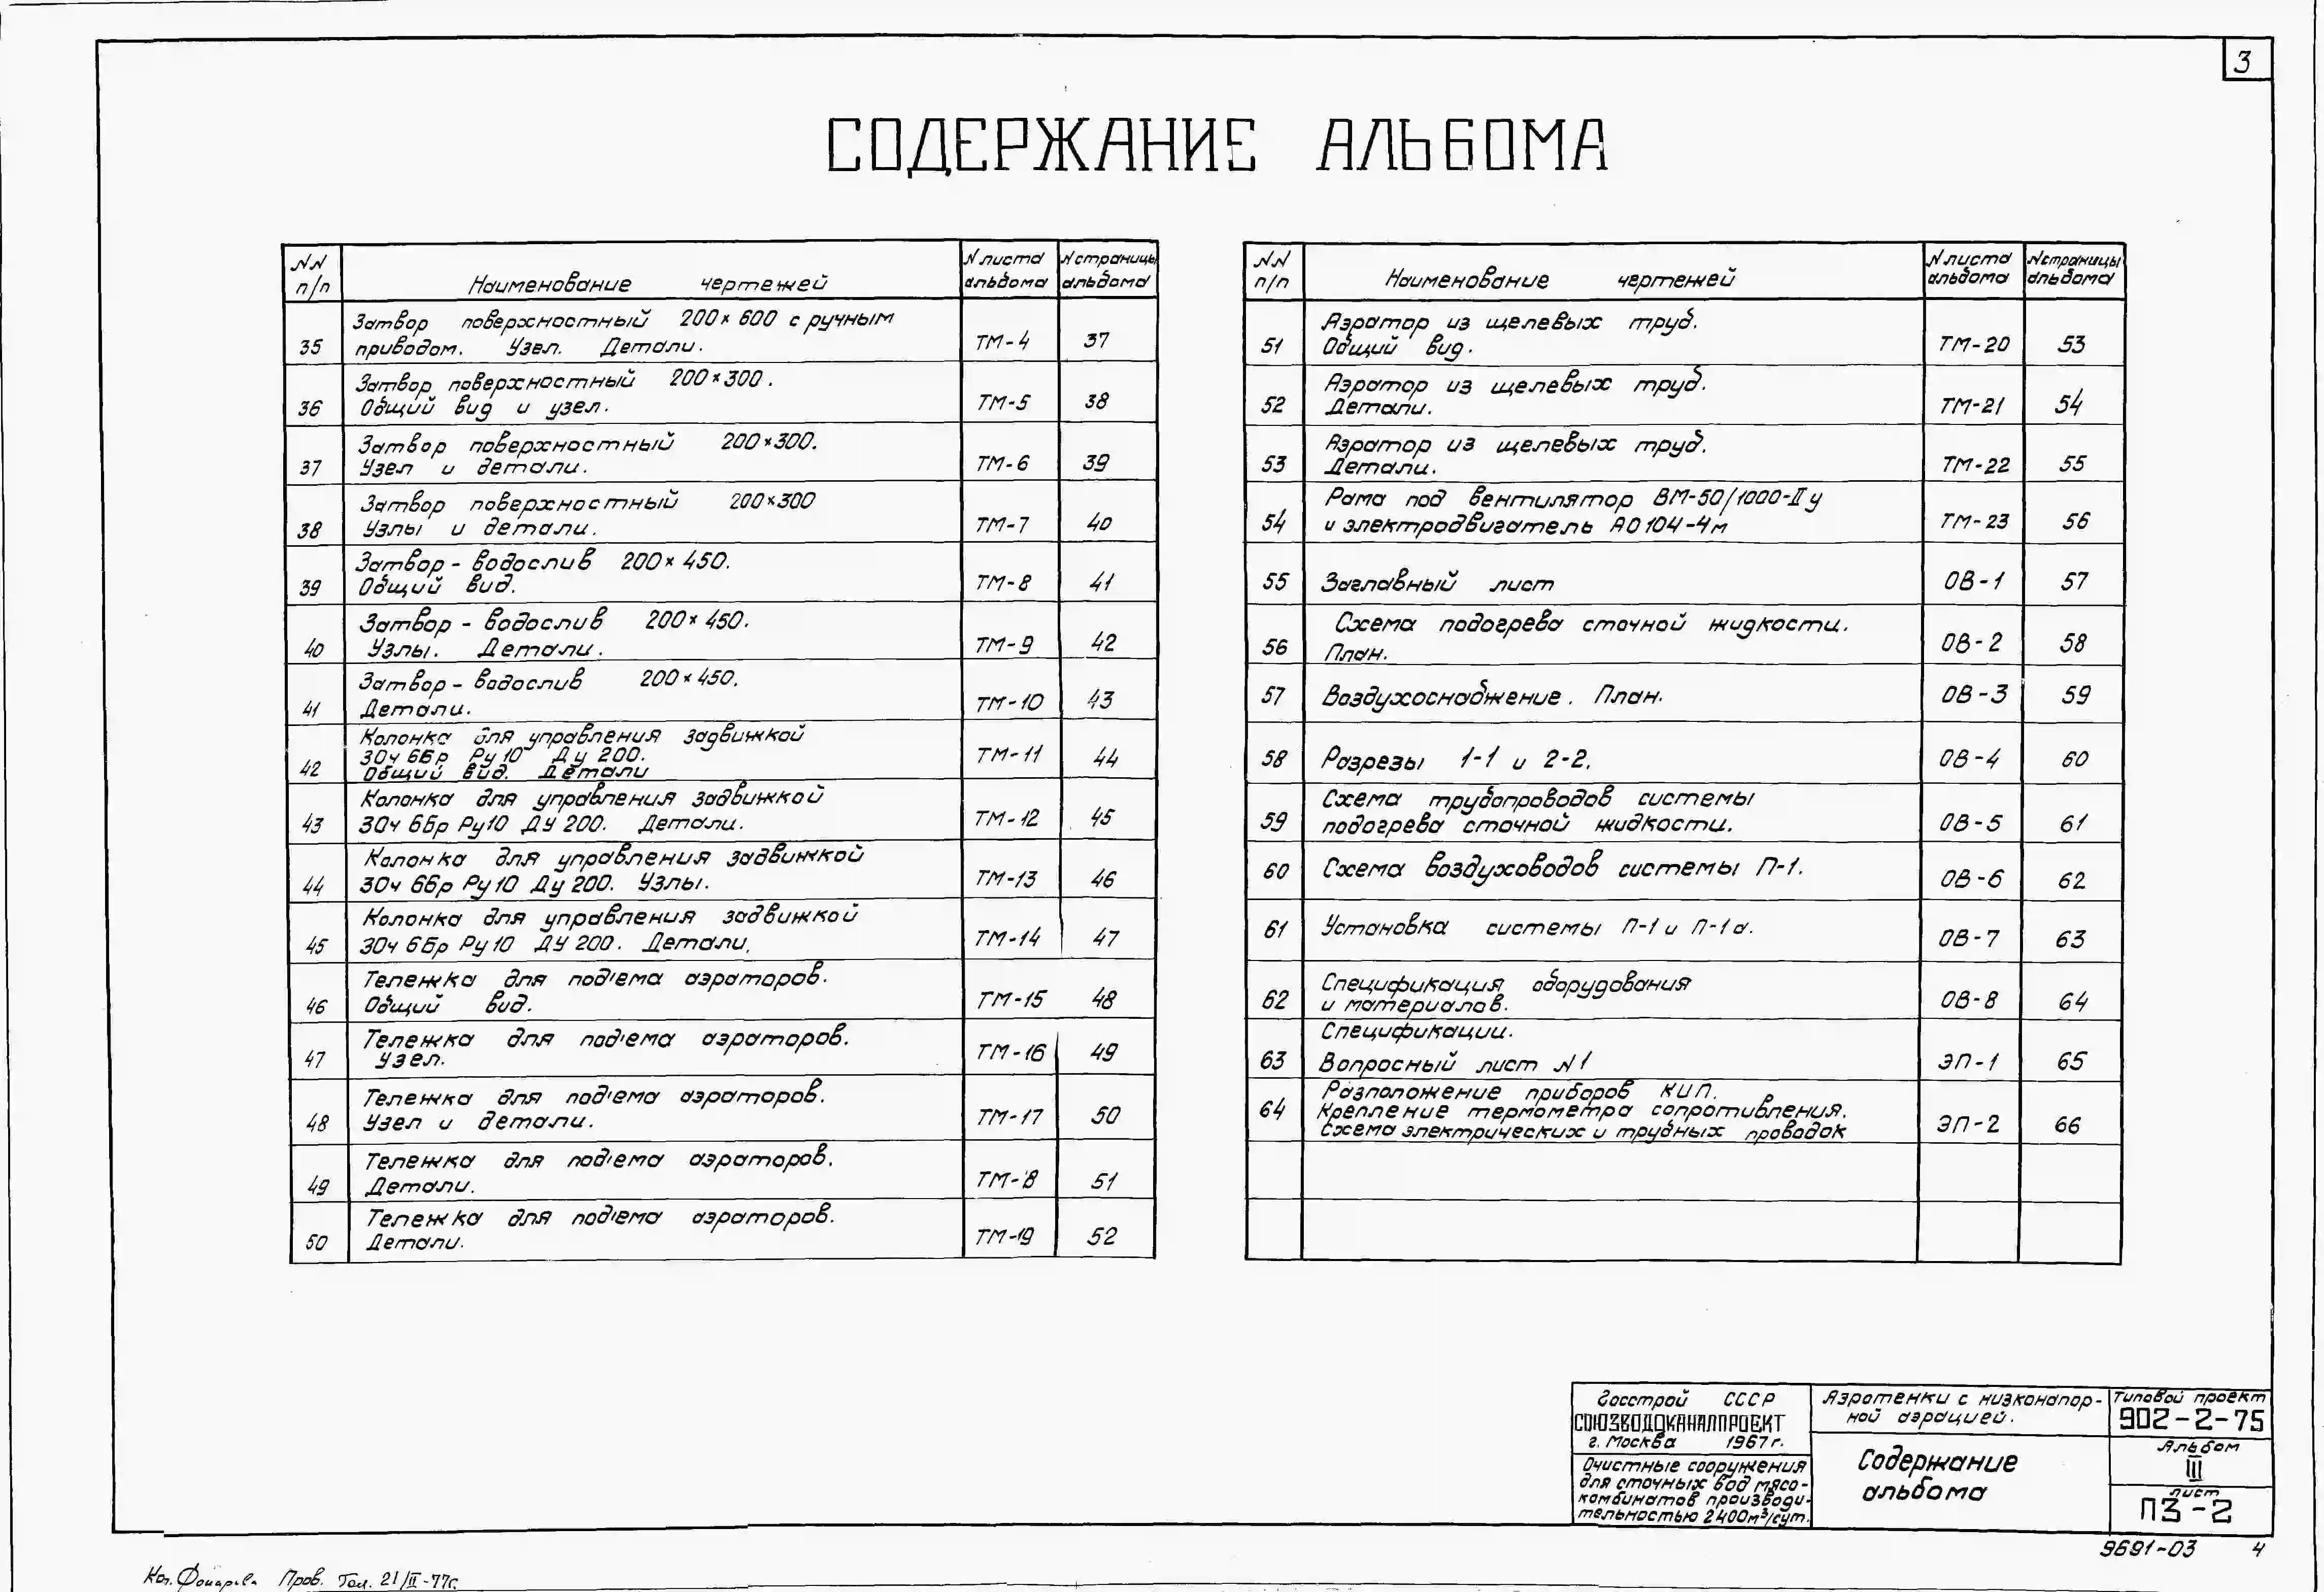 3
СОДЕРЖАНИЕ АЛЬБОМА
NN п/п
Наименование чертежей
N листа альбома
N страницы альбома
35
Затвор поверхностный 200×600 с ручным
приводом. Узел. Детали.
ТМ-4
37
36
Затвор поверхностный 200×300.
Общий вид и узел.
ТМ-5
38
37
Затвор поверхностный 200×300.
Узел и детали.
ТМ-6
39
38
Затвор поверхностный 200×300
Узлы и детали.
ТМ-7
40
39
Затвор-водослив 200×450.
Общий вид.
ТМ-8
41
40
Затвор-водослив 200×450.
Узлы. Детали.
ТМ-9
42
41
Затвор-водослив 200×450.
Детали.
ТМ-10
43
42
Колонка для управления задвижкой
30ч 6Бр Ру10 Ду 200.
Общий вид. Детали
ТМ-11
44
43
Колонка для управления задвижкой
30ч 6Бр Ру10 ДУ 200. Детали.
ТМ-12
45
44
Колонка для управления задвижкой
30ч 6бр Ру10 Ду 200. Узлы.
ТМ-13
46
45
Колонка для управления задвижкой
30ч 6Бр Ру10 ДУ 200. Детали.
ТМ-14
47
46
Тележка для под'ема аэраторов.
Общий вид.
ТМ-15
48
47
Тележка для под'ема аэраторов.
Узел.
ТМ-16
49
48
Тележка для под'ема аэраторов.
Узел и детали.
ТМ-17
50
49
Тележка для под'ема аэраторов.
Детали.
ТМ-18
51
50
Тележка для под'ема аэраторов.
Детали.
ТМ-19
52
NN п/п
Наименование чертежей
N листа альбома
N страницы альбома
51
Аэратор из щелевых труб.
Общий вид.
ТМ-20
53
52
Аэратор из щелевых труб.
Детали.
ТМ-21
54
53
Аэратор из щелевых труб.
Детали.
ТМ-22
55
54
Рама под вентилятор ВМ-50/1000-IIу
и электродвигатель АО104-4м
ТМ-23
56
55
Заглавный лист
ОВ-1
57
56
Схема подогрева сточной жидкости.
План.
ОВ-2
58
57
Воздухоснабжение. План.
ОВ-3
59
58
Разрезы 1-1 и 2-2.
ОВ-4
60
59
Схема трубопроводов системы
подогрева сточной жидкости.
ОВ-5
61
60
Схема воздуховодов системы П-1.
ОВ-6
62
61
Установка системы П-1 и П-1а.
ОВ-7
63
62
Спецификация оборудования
и материалов.
ОВ-8
64
63
Спецификации.
Вопросный лист N1
ЭП-1
65
64
Розположение приборов КИП.
Крепление термометра сопротивления.
Схема электрических и трубных проводок
ЭП-2
66
Госстрой СССР
СОЮЗВОДОКАНАЛПРОЕКТ
г. Москва 1967г.
Очистные сооружения
для сточных вод мясо-
комбинатов производи-
тельностью 2400м³/сут.
Аэротенки с низконапор-
ной аэрацией.
Содержание
альбома
Типовой проект
902-2-75
Альбом
III
лист
ПЗ-2
9691-03 4
Коп. Пров. Гол. 21/II-77г.